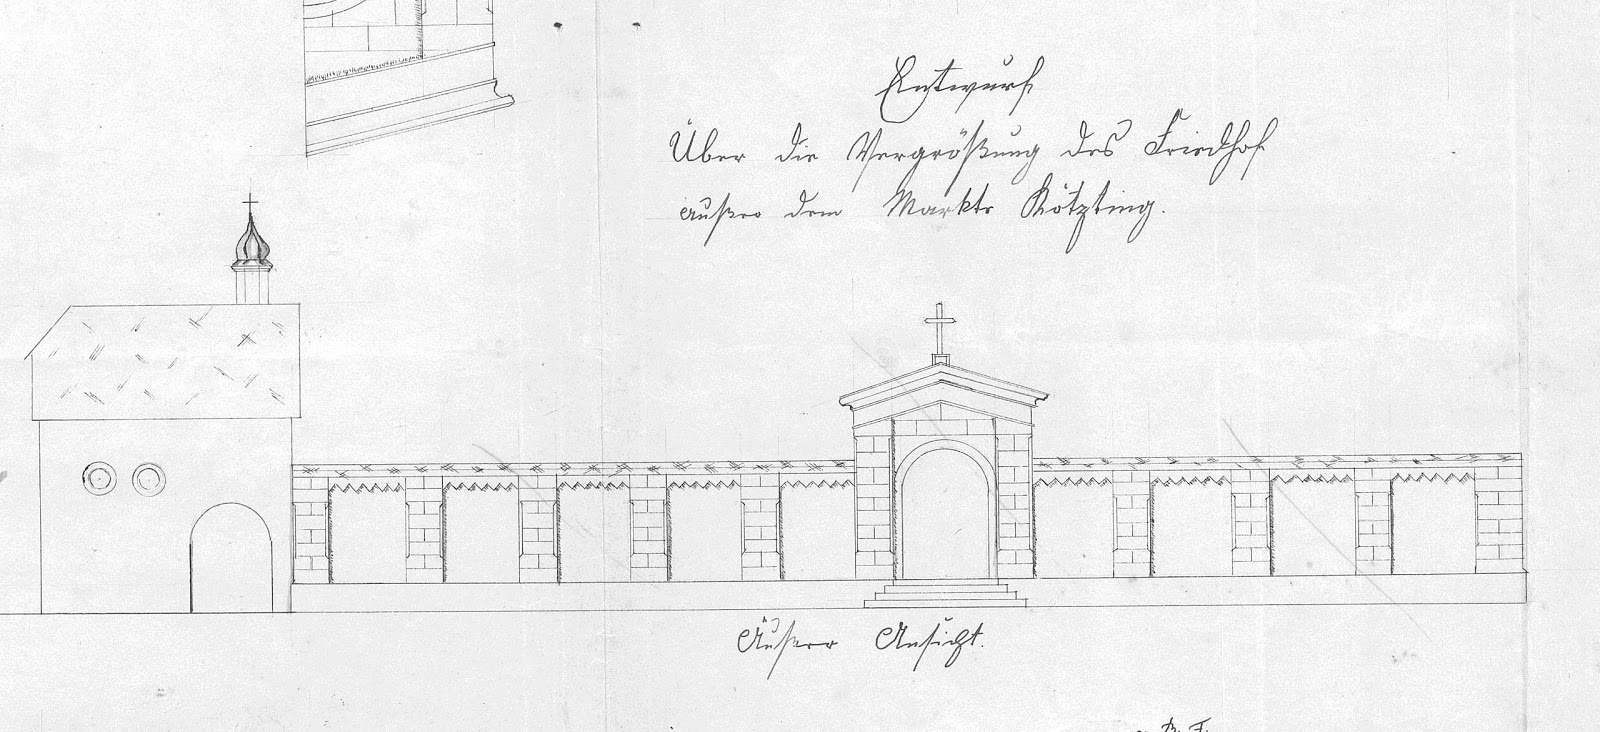 Entwurf
Über die Vergrößung des Friedhof
außer dem Markte Kötzting.
Äußere Ansicht.
B. F.